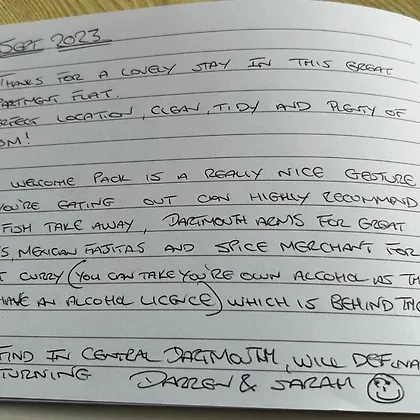 SEPT 2023
THANKS FOR A LOVELY STAY IN THIS GREAT
APARTMENT FLAT.
PERFECT LOCATION, CLEAN, TIDY AND PLENTY OF
OM!
WELCOME PACK IS A REALLY NICE GESTURE
YOU'RE EATING OUT CAN HIGHLY RECOMMEND
FISH TAKE AWAY, DARTMOUTH ARMS FOR GREAT
S, MEXICAN FAJITAS AND SPICE MERCHANT FOR
T CURRY (YOU CAN TAKE YOU'RE OWN ALCOHOL AS TH
HAVE AN ALCOHOL LICENCE) WHICH IS BEHIND THE
FIND IN CENTRAL DARTMOUTH, WILL DEFINA
TURNING DARREN & SARAH